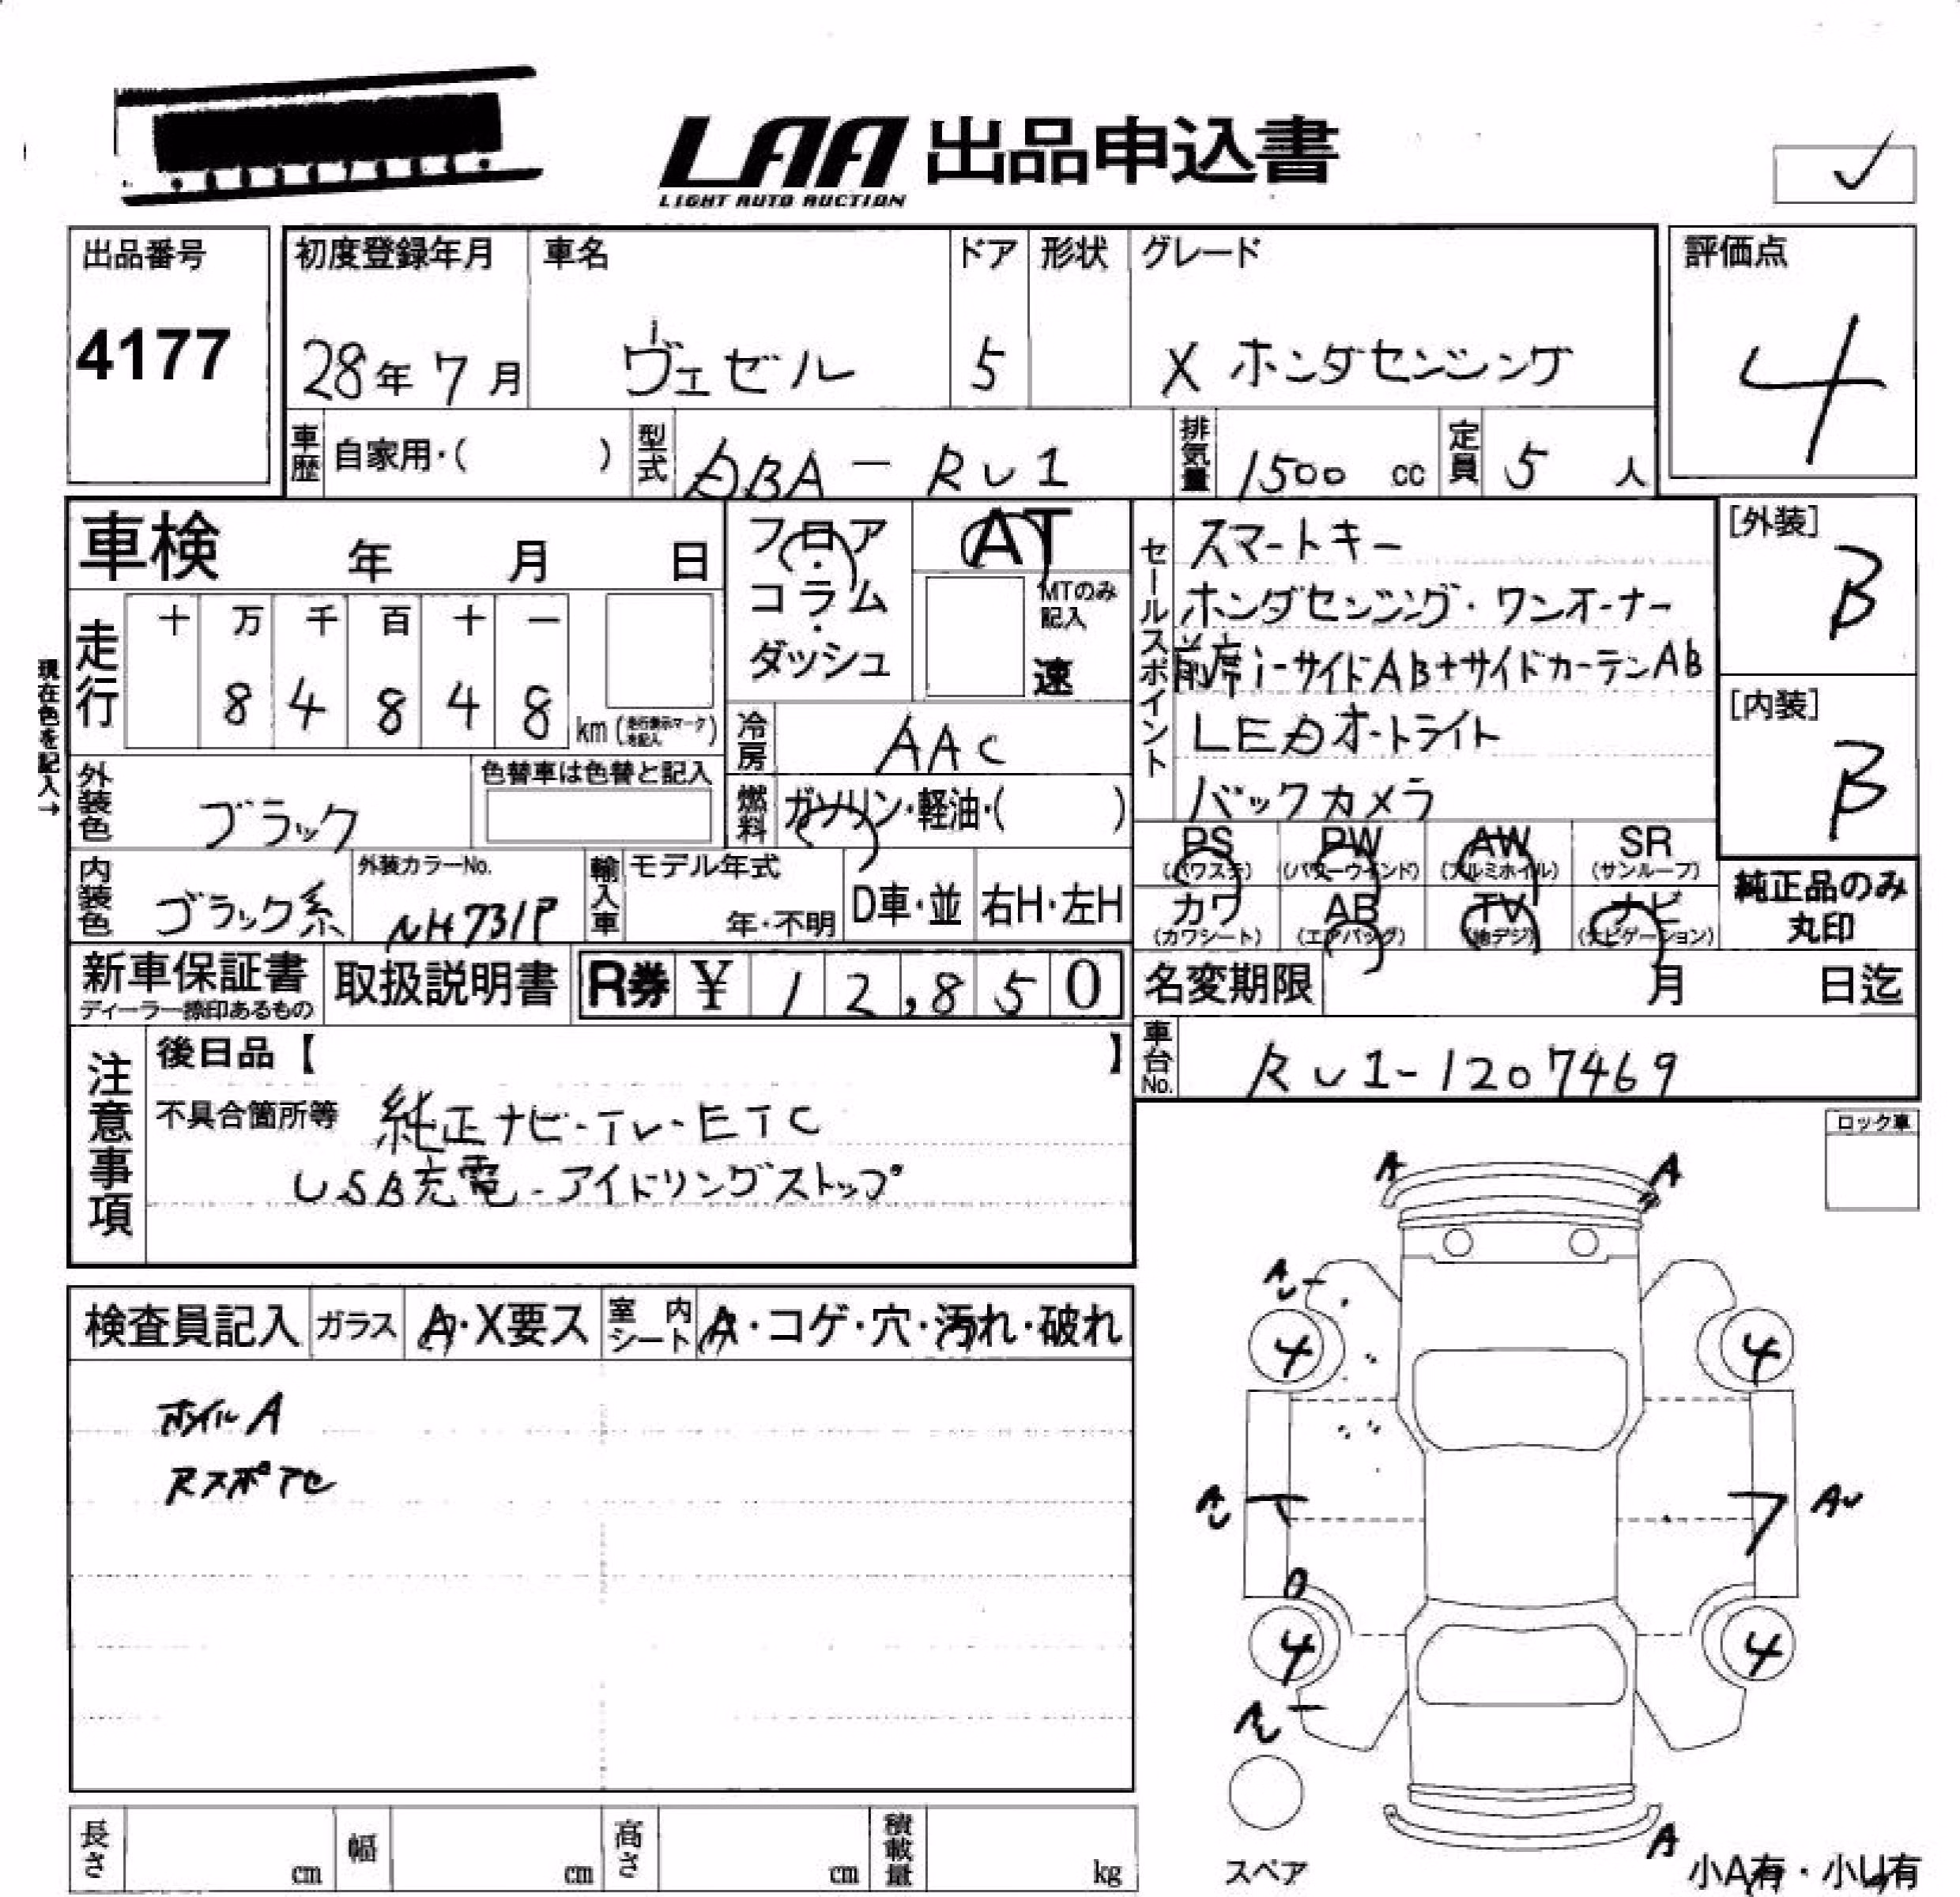 LAA 出品申込書
LIGHT AUTO AUCTION
出品番号
4177
初度登録年月 車名 ドア 形状 グレード
28年 7月 ヴェゼル 5 X ホンダセンシング
評価点
4
車歴 自家用・( ) 型式 DBA - RU1 排気量 1500 cc 定員 5 人
車検 年 月 日
フロア・コラム・ダッシュ
AT
MTのみ記入
速
セールスポイント
スマートキー
ホンダセンシング・ワンオーナー
前席i-サイドAB+サイドカーテンAB
LEDオートライト
バックカメラ
[外装]
B
[内装]
B
現在色を記入→
走行 十 万 千 百 十 一
8 4 8 4 8 km
冷房 AAC
外装色 ブラック
色替車は色替と記入
燃料 ガソリン・軽油・( )
PS (パワステ) PW (パワーウインド) AW (アルミホイル) SR (サンルーフ)
カワ (カワシート) AB (エアバッグ) TV (地デジ) ナビ (ナビゲーション)
純正品のみ丸印
内装色 ブラック系
外装カラーNo.
NH731P
輸入車 モデル年式 年・不明 D車・並 右H・左H
新車保証書
取扱説明書
R券 ¥ 12,850
名変期限 月 日迄
車台No. RU1-1207469
注意事項
後日品【 】
不具合箇所等 純正ナビ・TV・ETC
USB充電・アイドリングストップ
ロック車
検査員記入 ガラス A・X要ス 室内シート A・コゲ・穴・汚れ・破れ
ホイルA
A A
4 4
4 4
A
スペア
小A有・小U有
長さ cm 幅 cm 高さ cm 積載量 kg